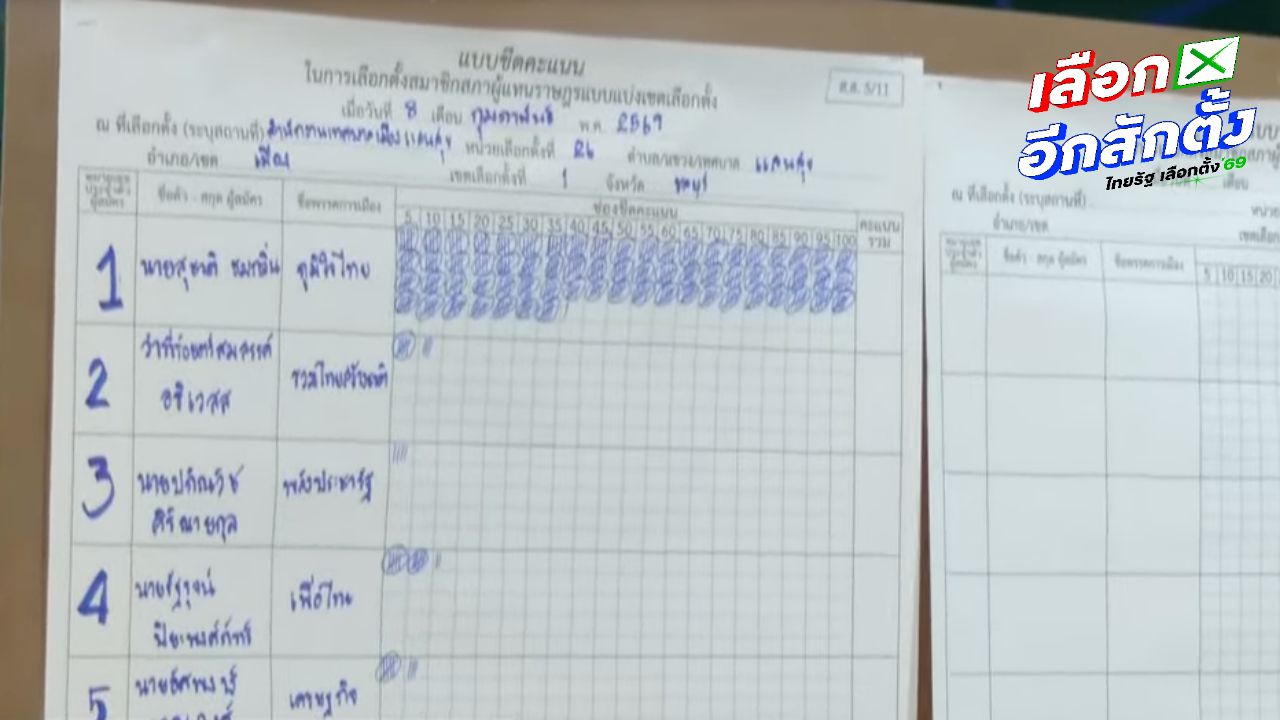 แบบขีดคะแนน
ในการเลือกตั้งสมาชิกสภาผู้แทนราษฎรแบบแบ่งเขตเลือกตั้ง
ส.ส. 5/11
เมื่อวันที่ 8 เดือน กุมภาพันธ์ พ.ศ. 2569
ณ ที่เลือกตั้ง (ระบุสถานที่) สำนักงานเทศบาลเมืองแสนสุข หน่วยเลือกตั้งที่ 26 ตำบล/แขวง/เทศบาล แสนสุข
อำเภอ/เขต เมือง เขตเลือกตั้งที่ 1 จังหวัด ชลบุรี
หมายเลขประจำตัวผู้สมัคร ชื่อตัว - สกุล ผู้สมัคร ชื่อพรรคการเมือง ช่องขีดคะแนน คะแนนรวม
5 10 15 20 25 30 35 40 45 50 55 60 65 70 75 80 85 90 95 100
1 นายสุชาติ ชมกลิ่น ภูมิใจไทย
2 ว่าที่ร้อยตรีสมสรรค์ รวมไทยสร้างชาติ
3 นายปภิณวิช พลังประชารัฐ
4 เพื่อไทย
5 เศรษฐกิจ
เลือก
อีกสักตั้ง
ไทยรัฐ เลือกตั้ง'69
ณ ที่เลือกตั้ง (ระบุสถานที่)
อำเภอ/เขต
หมายเลขประจำตัวผู้สมัคร ชื่อตัว - สกุล ผู้สมัคร ชื่อพรรคการเมือง
5 10 15 20